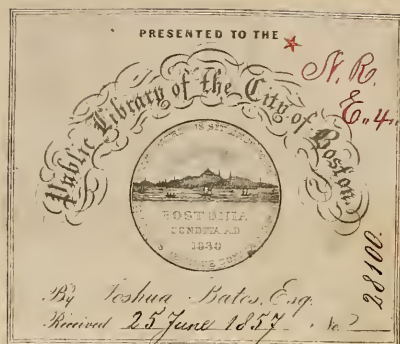 PRESENTED TO THE
N. R.
E. 4.
Public Library of the City of Boston.
BOSTONIA
CONDITA A.D
By Joshua Bates, Esq.
Received 25 June 1857. No.
28100.